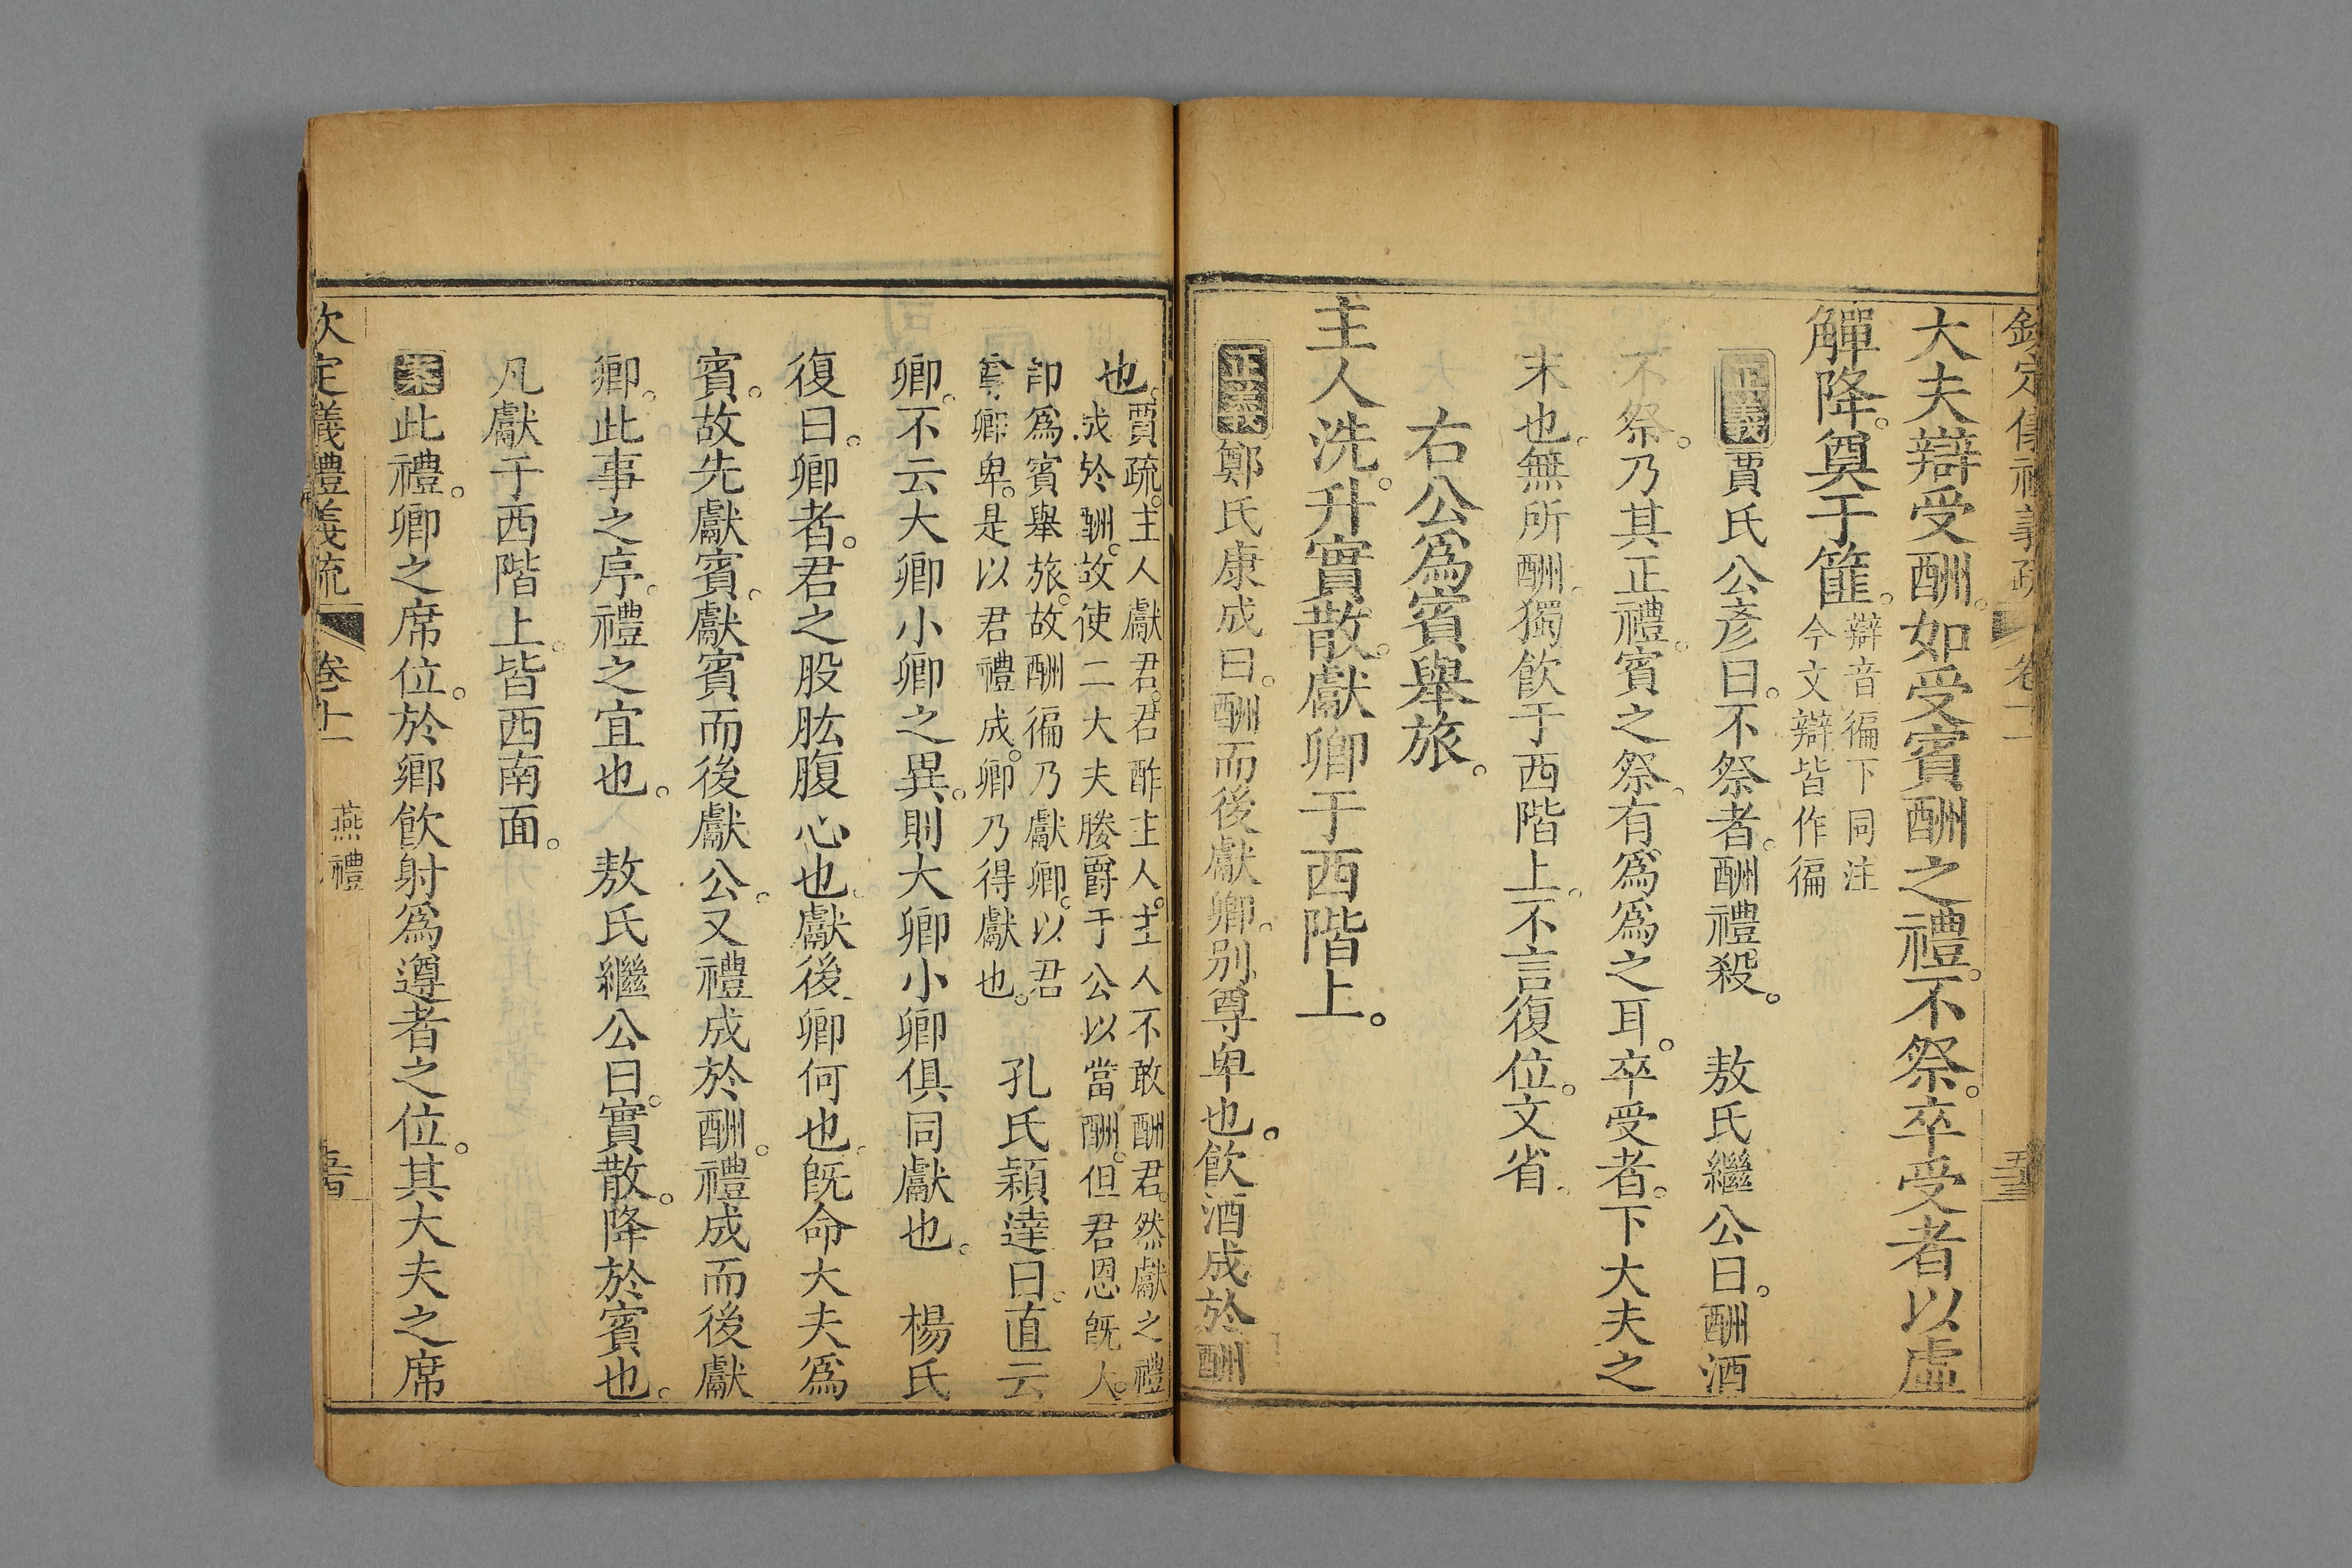 欽定儀禮義疏 卷十一 五十三
大夫辯受酬。如受賓酬之禮。不祭。卒受者以虛
觶降。奠于篚。辯音徧下同注
今文辯皆作徧
正義賈氏公彥曰。不祭者。酬禮殺。 敖氏繼公曰。酬酒
不祭。乃其正禮。賓之祭。有爲爲之耳。卒受者。下大夫之
末也。無所酬。獨飲于西階上。不言復位。文省。
右公爲賓舉旅。
主人洗。升實散。獻卿于西階上。
正義鄭氏康成曰。酬而後獻卿。別尊卑也。飲酒成於酬
也。賈疏。主人獻君。君酢主人。主人不敢酬君。然獻之禮
成於酬。故使二大夫媵爵于公以當酬。但君恩旣人。
卽爲賓舉旅。故酬徧乃獻卿。以君
尊卿卑。是以君禮成。卿乃得獻也。 孔氏穎達曰。直云
卿。不云大卿小卿之異。則大卿小卿俱同獻也。 楊氏
復曰。卿者。君之股肱腹心也。獻後卿何也。旣命大夫爲
賓。故先獻賓。獻賓而後獻公。又禮成於酬。禮成而後獻
卿。此事之序。禮之宜也。 敖氏繼公曰。實散。降於賓也。
凡獻于西階上。皆西南面。
案此禮。卿之席位。於鄉飲射爲遵者之位。其大夫之席
欽定儀禮義疏 卷十一 燕禮